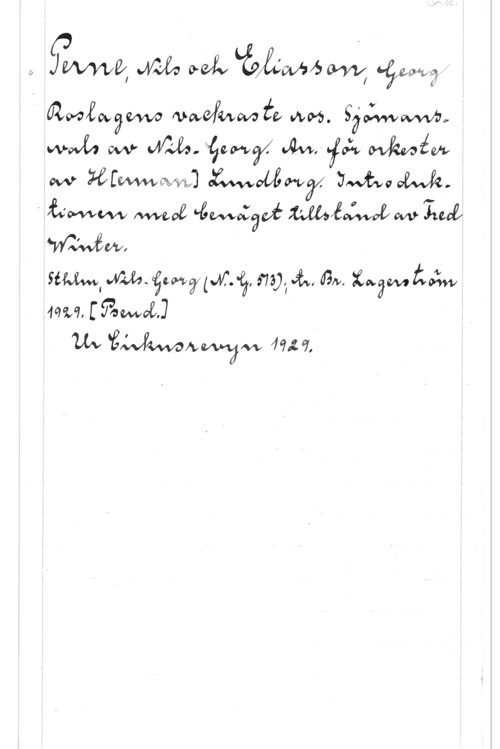 Perne, Nils och Eliasson, Georg
Roslagens vackraste ros. Sjömans-
vals av Nils-Georg. Arr. för orkester
av H[erman] Lundborg. Introduk-
tionen med benäget tillstånd av Fred
Winter.
Sthlm, Nils-Georg (N.-G. 573); tr. Br. Lagerström
1929. [Pseud.]
Ur Cirkusrevyn 1929.